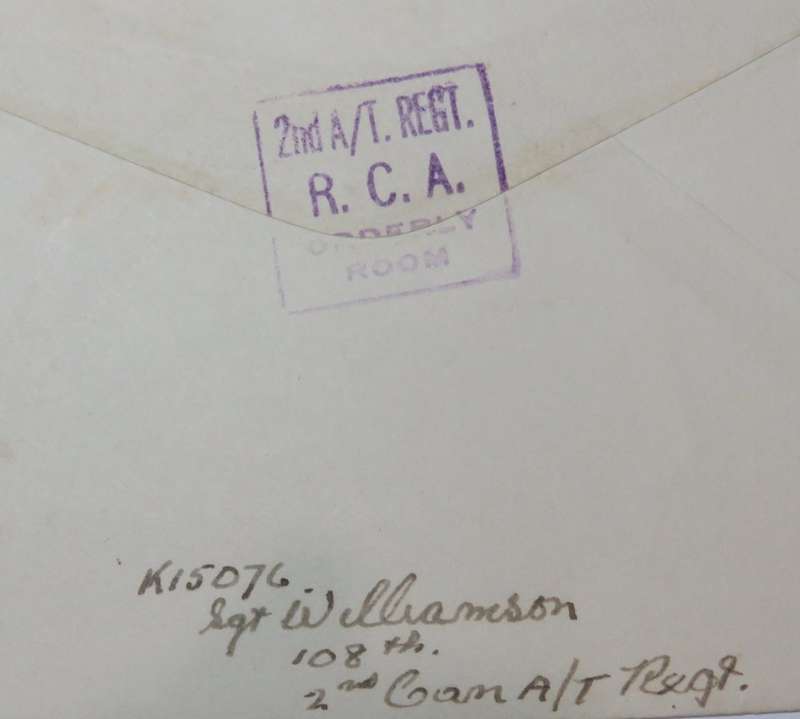 2nd A/T. REGT.
R. C. A.
ORDERLY
ROOM
K15076.
Sgt Williamson
108 th.
2nd Can A/T Regt.